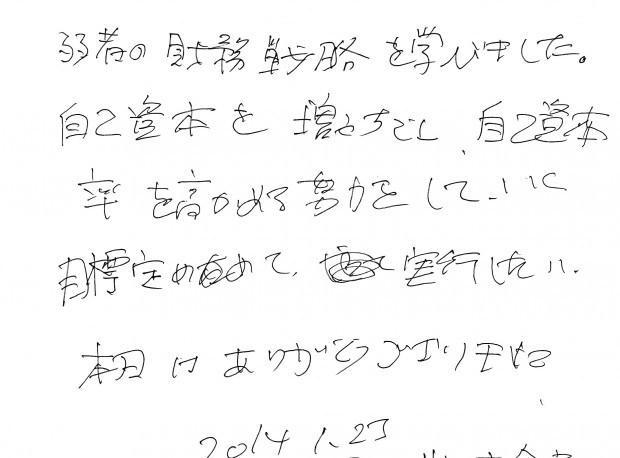 弱者の財務戦略を学びました。
自己資本を増やし、自己資本
率を高かめる努力をして
目標定め 実行したい。
本日はありがとうございました
2014 1.23